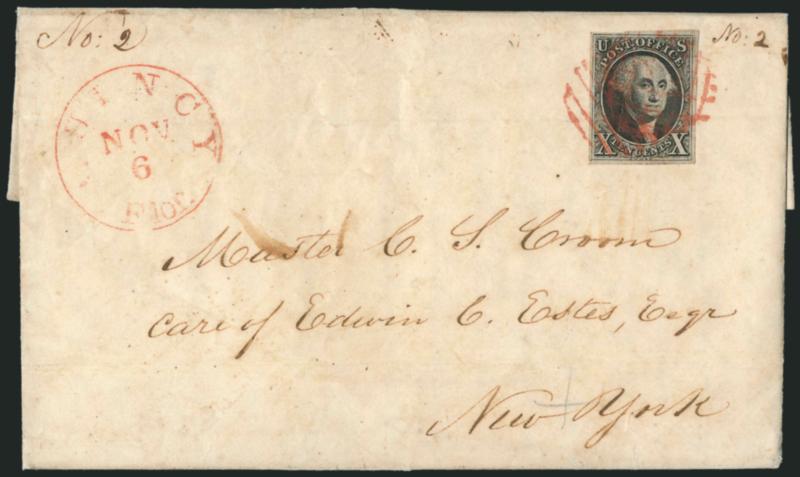 No: 2
No: 2
U S
POST OFFICE
X TEN CENTS X
UINCY
NOV
6
Flor.
Master C. S. Croom
care of Edwin C. Estes, Esqr
New York